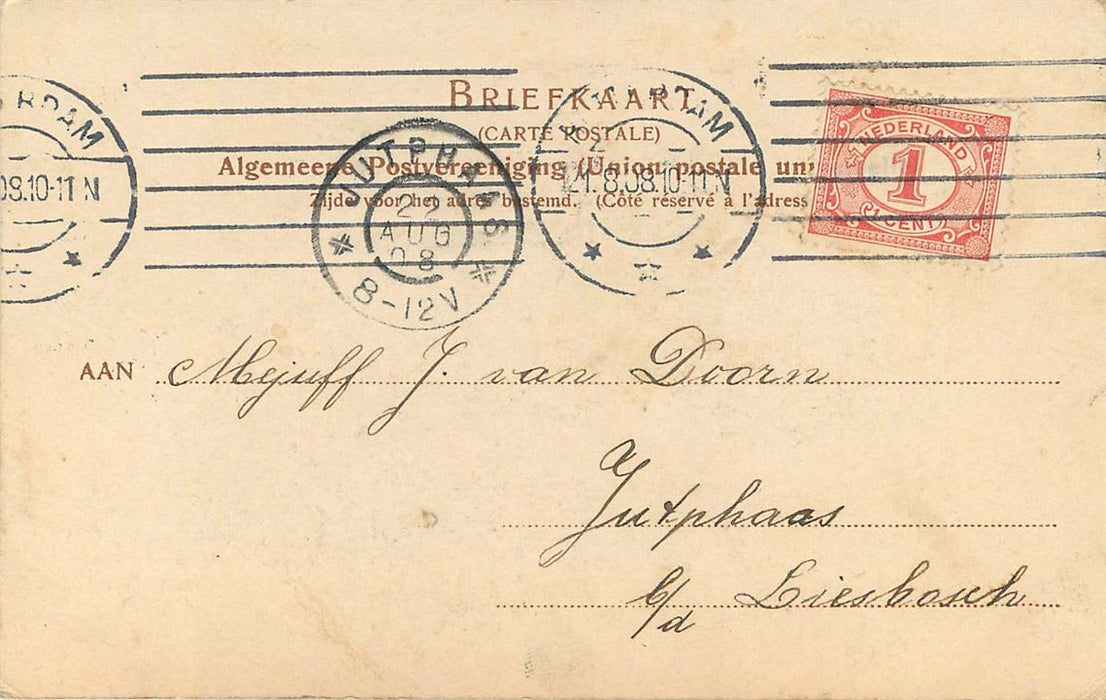 BRIEFKAART
(CARTE POSTALE)
Algemeene Postvereeniging (Union postale
Zijde voor het adres bestemd. (Côté réservé à l'adress
RDAM
08.10-11 N
JUTPHAAS
22
AUG
08
8-12V
RDAM
21.8.08.10-11 N
NEDERLAND
1
(1 CENT)
AAN Mejuff J. van Doorn
Jutphaas
b/d Liesbosch